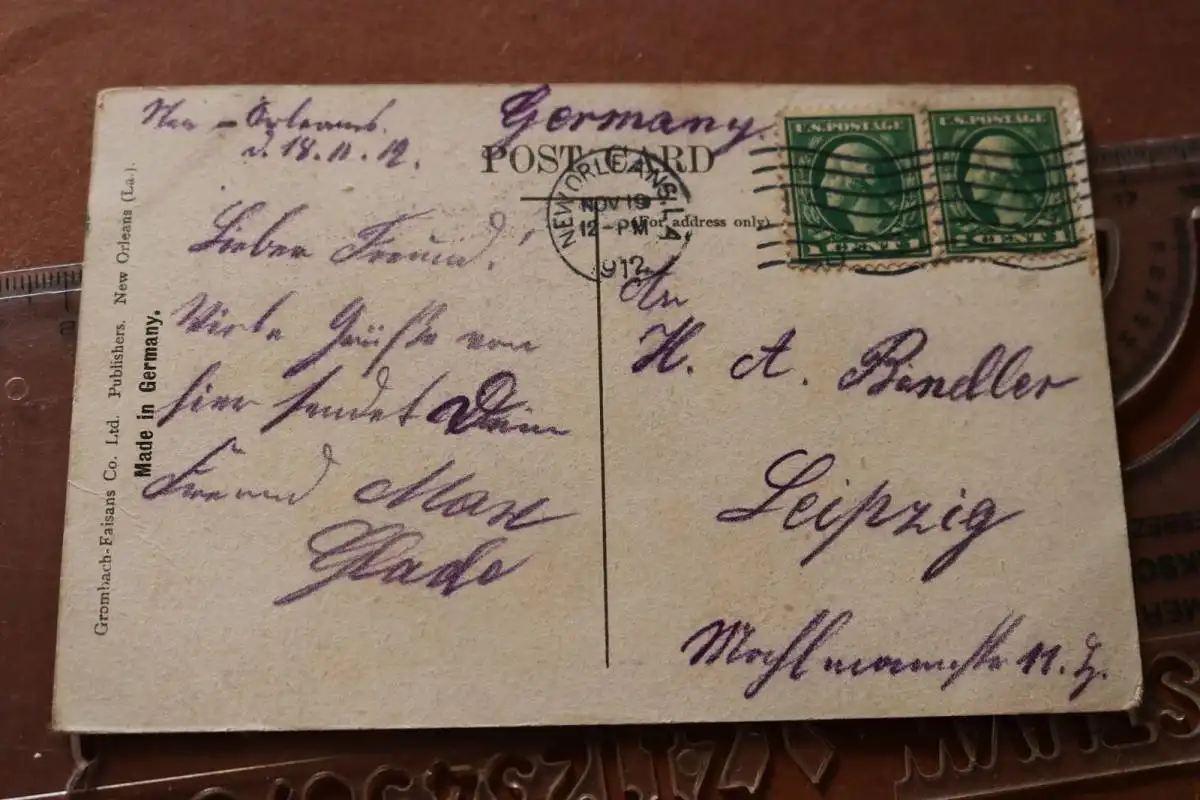 Neu-Orleans.
d. 18.11.12.
Lieber Freund!
Viele Grüße von
hier sendet Dein
Freund Max
Glade
Grombach-Faisans Co. Ltd. Publishers. New Orleans (La.).
Made in Germany.
Germany.
POST CARD
(For address only)
NEW ORLEANS, LA.
NOV 19
12-PM
1912
U.S. POSTAGE
1 CENT 1
U.S. POSTAGE
CENT 1
An
H. A. Bindler
Leipzig
11.
17